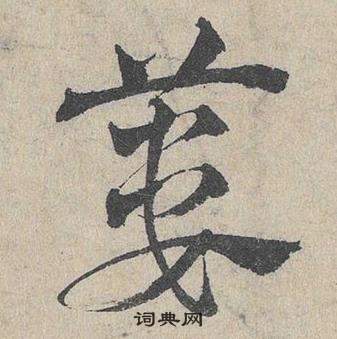 蔞
词典网